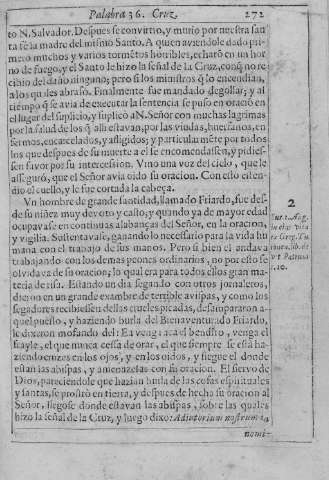 Palabra 36. Cruz. 272
to N. Salvador. Despues se convirtio, y murio por nuestra san
ta fe la madre del mismo Santo. A quien aviendole dado pri-
mero muchos y varios tormẽtos horribles, echarõ en un hor
no de fuego, y el Santo le hizo la señal de la Cruz, con q̃ no re
cibio del daño ninguno; pero si los ministros q̃ lo encendian,
a los quales abraso. Finalmente fue mandado degollar; y al
tiempo q̃ se avia de executar la sentencia se puso en oraciõ en
el lugar del suplicio, y suplicò a N. Señor con muchas lagrimas
por la salud de los q̃ alli estavan, por las viudas, huerfanos, en
fermos, encarcelados, y afligidos; y particularmẽte por todos
los que despues de su muerte a el se encomendassen, y pidies-
sen favor por su intercession. Vino una voz del cielo, que le
asseguró, que el Señor avia oido su oracion. Con esto esten-
dio el cuello, y le fue cortada la cabeça.
Un hombre de grande santidad, llamado Friardo, fue des-
de su niñez muy devoto y casto; y quando ya de mayor edad
ocupavase en continuas alabanças del Señor, en la oracion,
y vigilia. Sustentavase, ganando lo necessario para la vida hu
mana con el trabajo de sus manos. Pero si bien el andava
trabajando con los demas peones ordinarios, no por esto se
olvidava de su oracion; lo qual era para todos ellos gran ma-
teria de risa. Estando un dia segando con otros jornaleros,
dieron en un grande exambre de terrible avispas, y como los
segadores recibiessen dellas crueles picadas, desampararon a-
quel puesto, y haziendo burla del Bienaventurado Friardo,
le dixeron mofando del: Ea venga acá el bendito, venga el
frayle, el que nunca cessa de orar, el que siempre se está ha-
ziendo cruzes en los ojos, y en los oidos, y siegue el donde
estan las abispas, y amenazelas con su oracion. El siervo de
Dios, pareciendole que hazian burla de las cosas espirituales
y santas, se prostrò en tierra, y despues de hecha su oracion al
Señor, llegose donde estavan las abispas, sobre las quales
hizo la señal de la Cruz, y luego dixo: Adiutorium nostrum in
nomi-
2
Greg. Tu
lib. de
10.